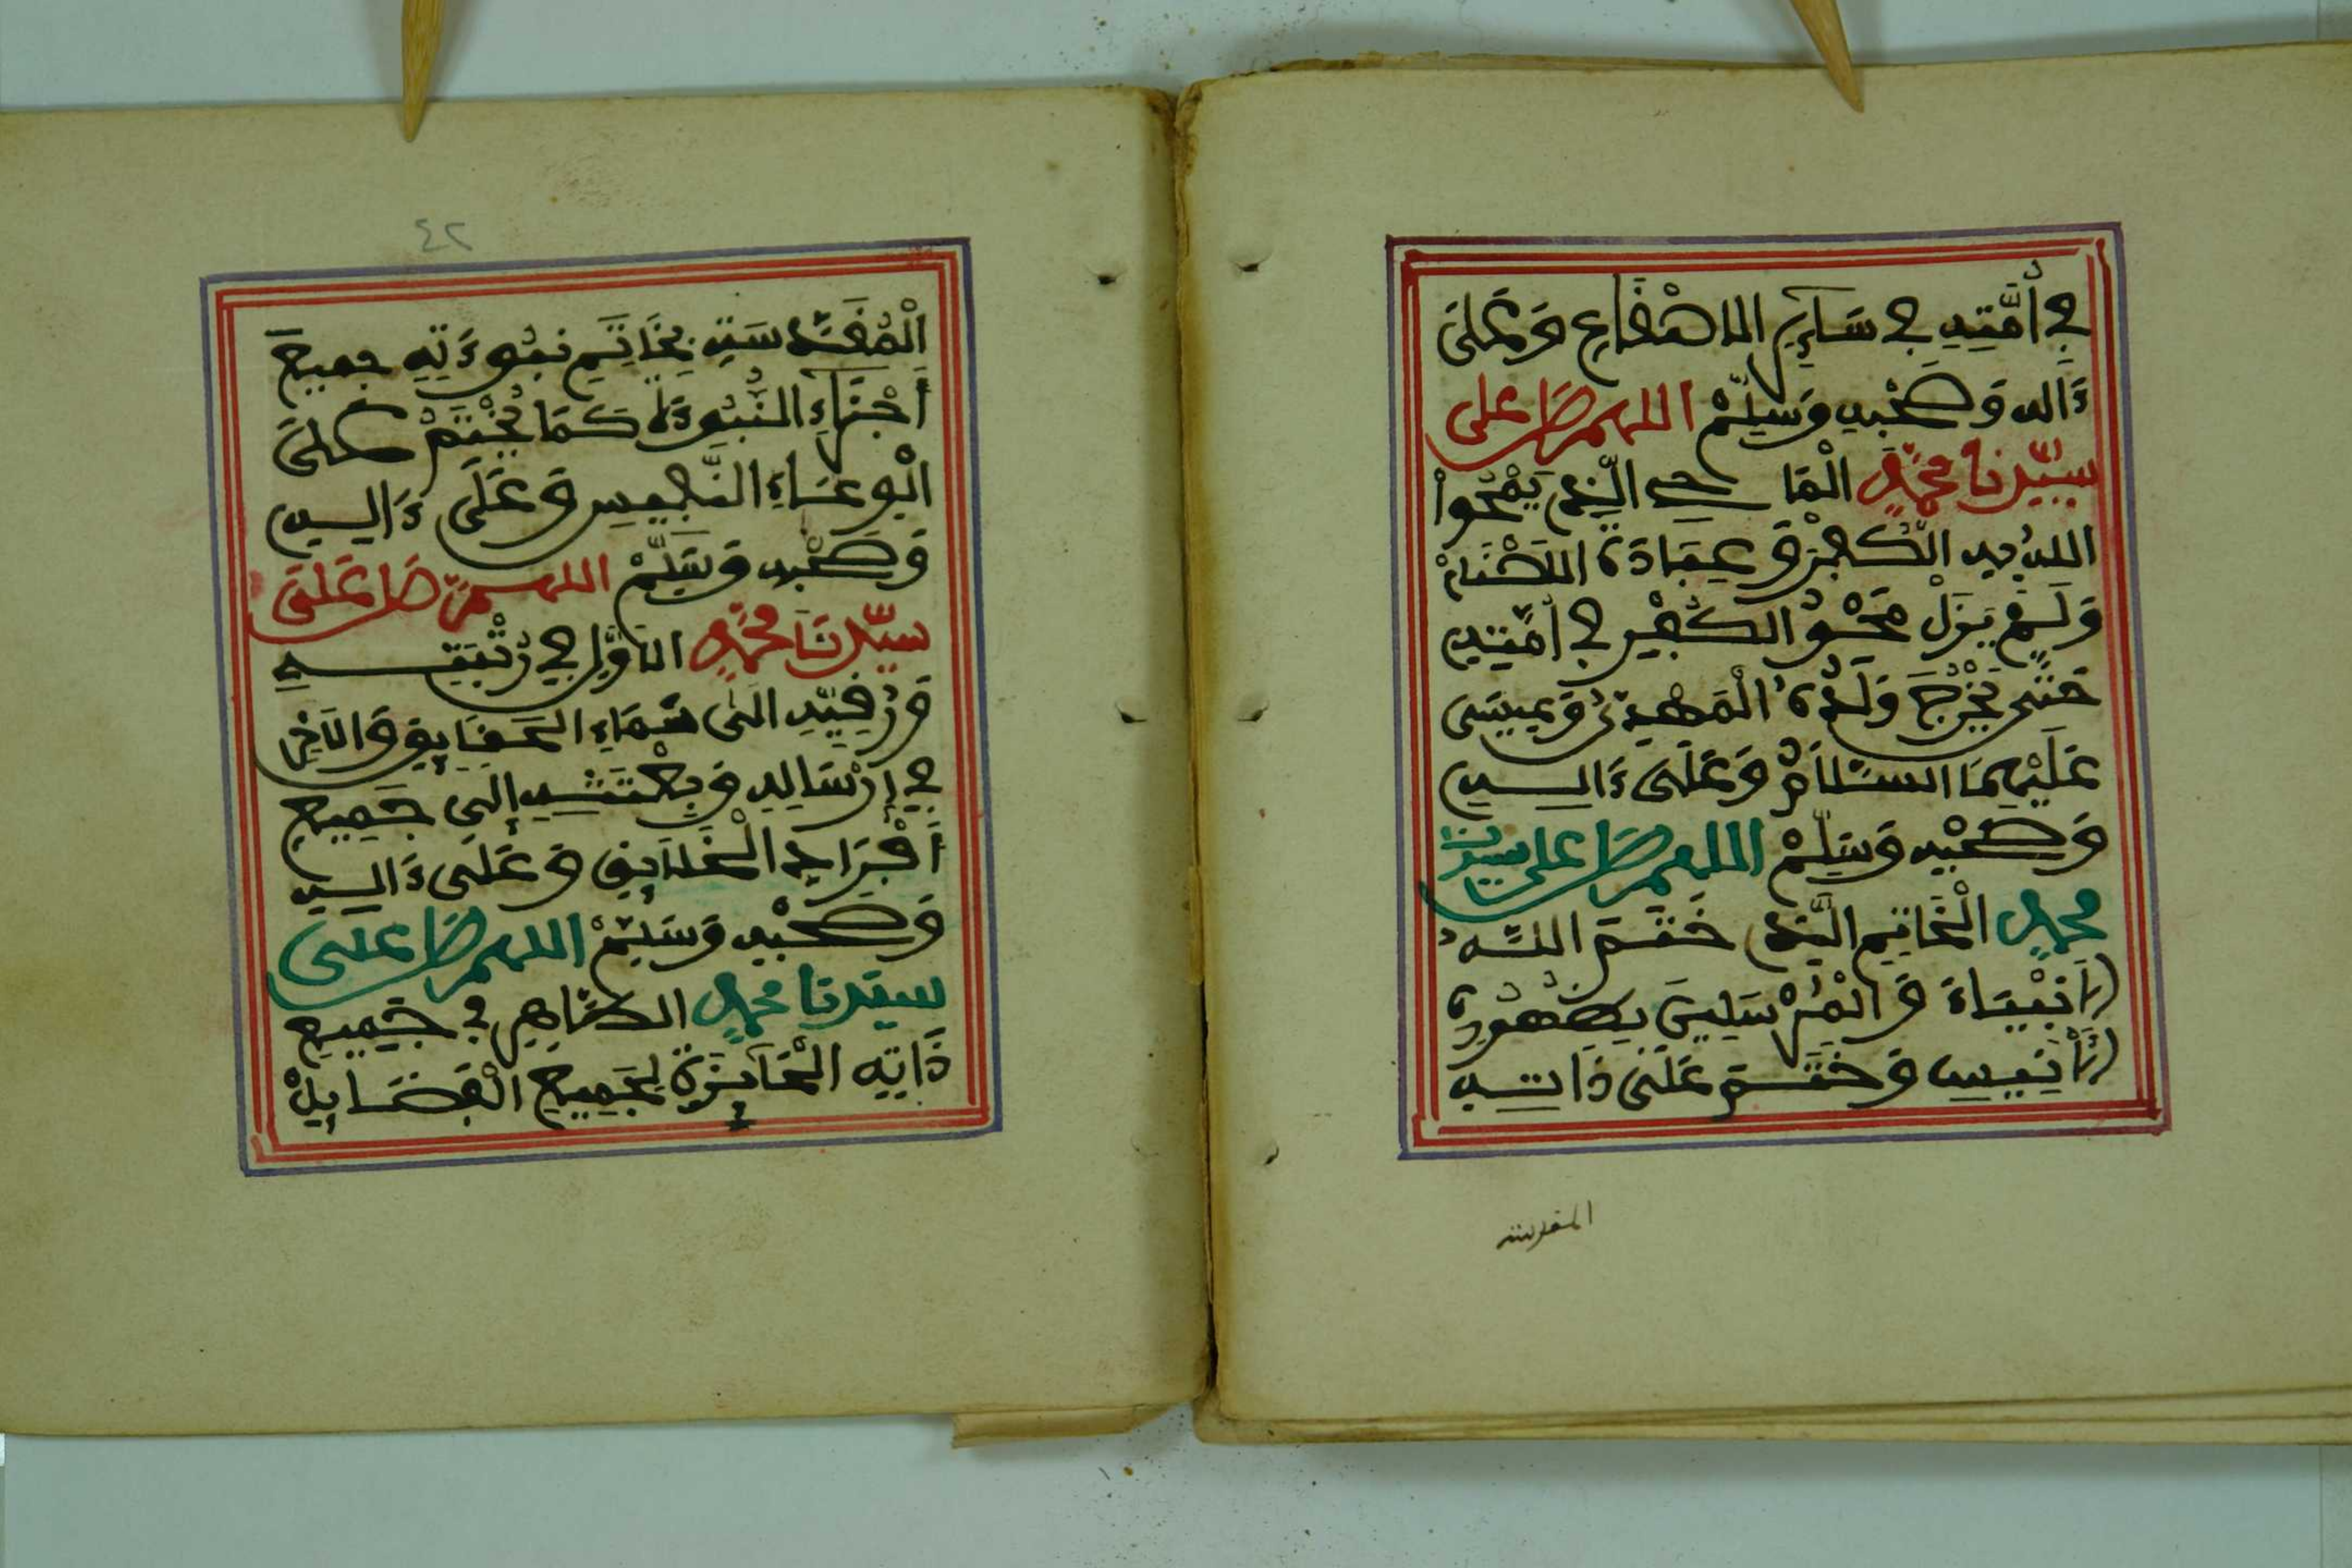 في أُمَّتِهِ في سَآئِرِ الاصْقَاعِ وَعَلَى
ءَالِهِ وَصَحْبِهِ وَسَلِّمْ اللهم صَلِّ على
سَيِّدِنَا مُحَمَّدٍ الْمَاحِي الَّذِي يَمْحُواْ
اللهُ بِهِ الْكُفْرَ وَعِبَادَةَ الَاصْنَامْ
وَلَمْ يَزَلْ مَحْوُ الْكُفْرِ في أُمَّتِهِ
حَتَّى يَخْرُجَ وَلَدُهُ الْمَهْدِيُّ وَعِيسَى
عَلَيْهِمَا السَّلَامُ وَعَلَى ءَالِهِ
وَصَحْبِهِ وَسَلِّمْ اللهم صَلِّ على سيدنا
محمدٍ الْخَاتِمِ الَّذِي خَتَمَ اللَّهُ
الَانْبِيَاءَ وَالْمُرْسَلِينَ بِظُهُورِهِ
الَانِيسِ وَخَتَمَ عَلَى ذَاتِهِ
المقدسة
٤٢
الْمُقَدَّسَةِ بِخَاتَمِ نُبُوءَتِهِ جميعَ
أَجْزَاءِ النُّبُوءَةِ كَمَا يُخْتَمُ عَلَى
الْوِعَاءِ النَّفِيسِ وَعَلَى ءَالِهِ
وَصَحْبِهِ وَسَلِّمْ اللهم صَلِّ عَلَى
سَيِّدِنَا مُحَمَّدٍ الاوَّلِ في رُتْبَتِهِ
وَرُقِيِّهِ الَى سَمَاءِ الحَقَايِقِ وَالَاخِرِ
في إِرْسَالِهِ وَبِعْثَتِهِ إِلَى جَمِيعِ
أَفْرَادِ الْخَلَايِقِ وَعَلَى ءَالِهِ
وَصَحْبِهِ وَسَلِّمْ اللهم صَلِّ على
سيدنا محمدٍ الظَّاهِرِ في جَمِيعِ
ذَاتِهِ الْحَآئِزَةِ لِجَمِيعِ الْفَضَايِلْ